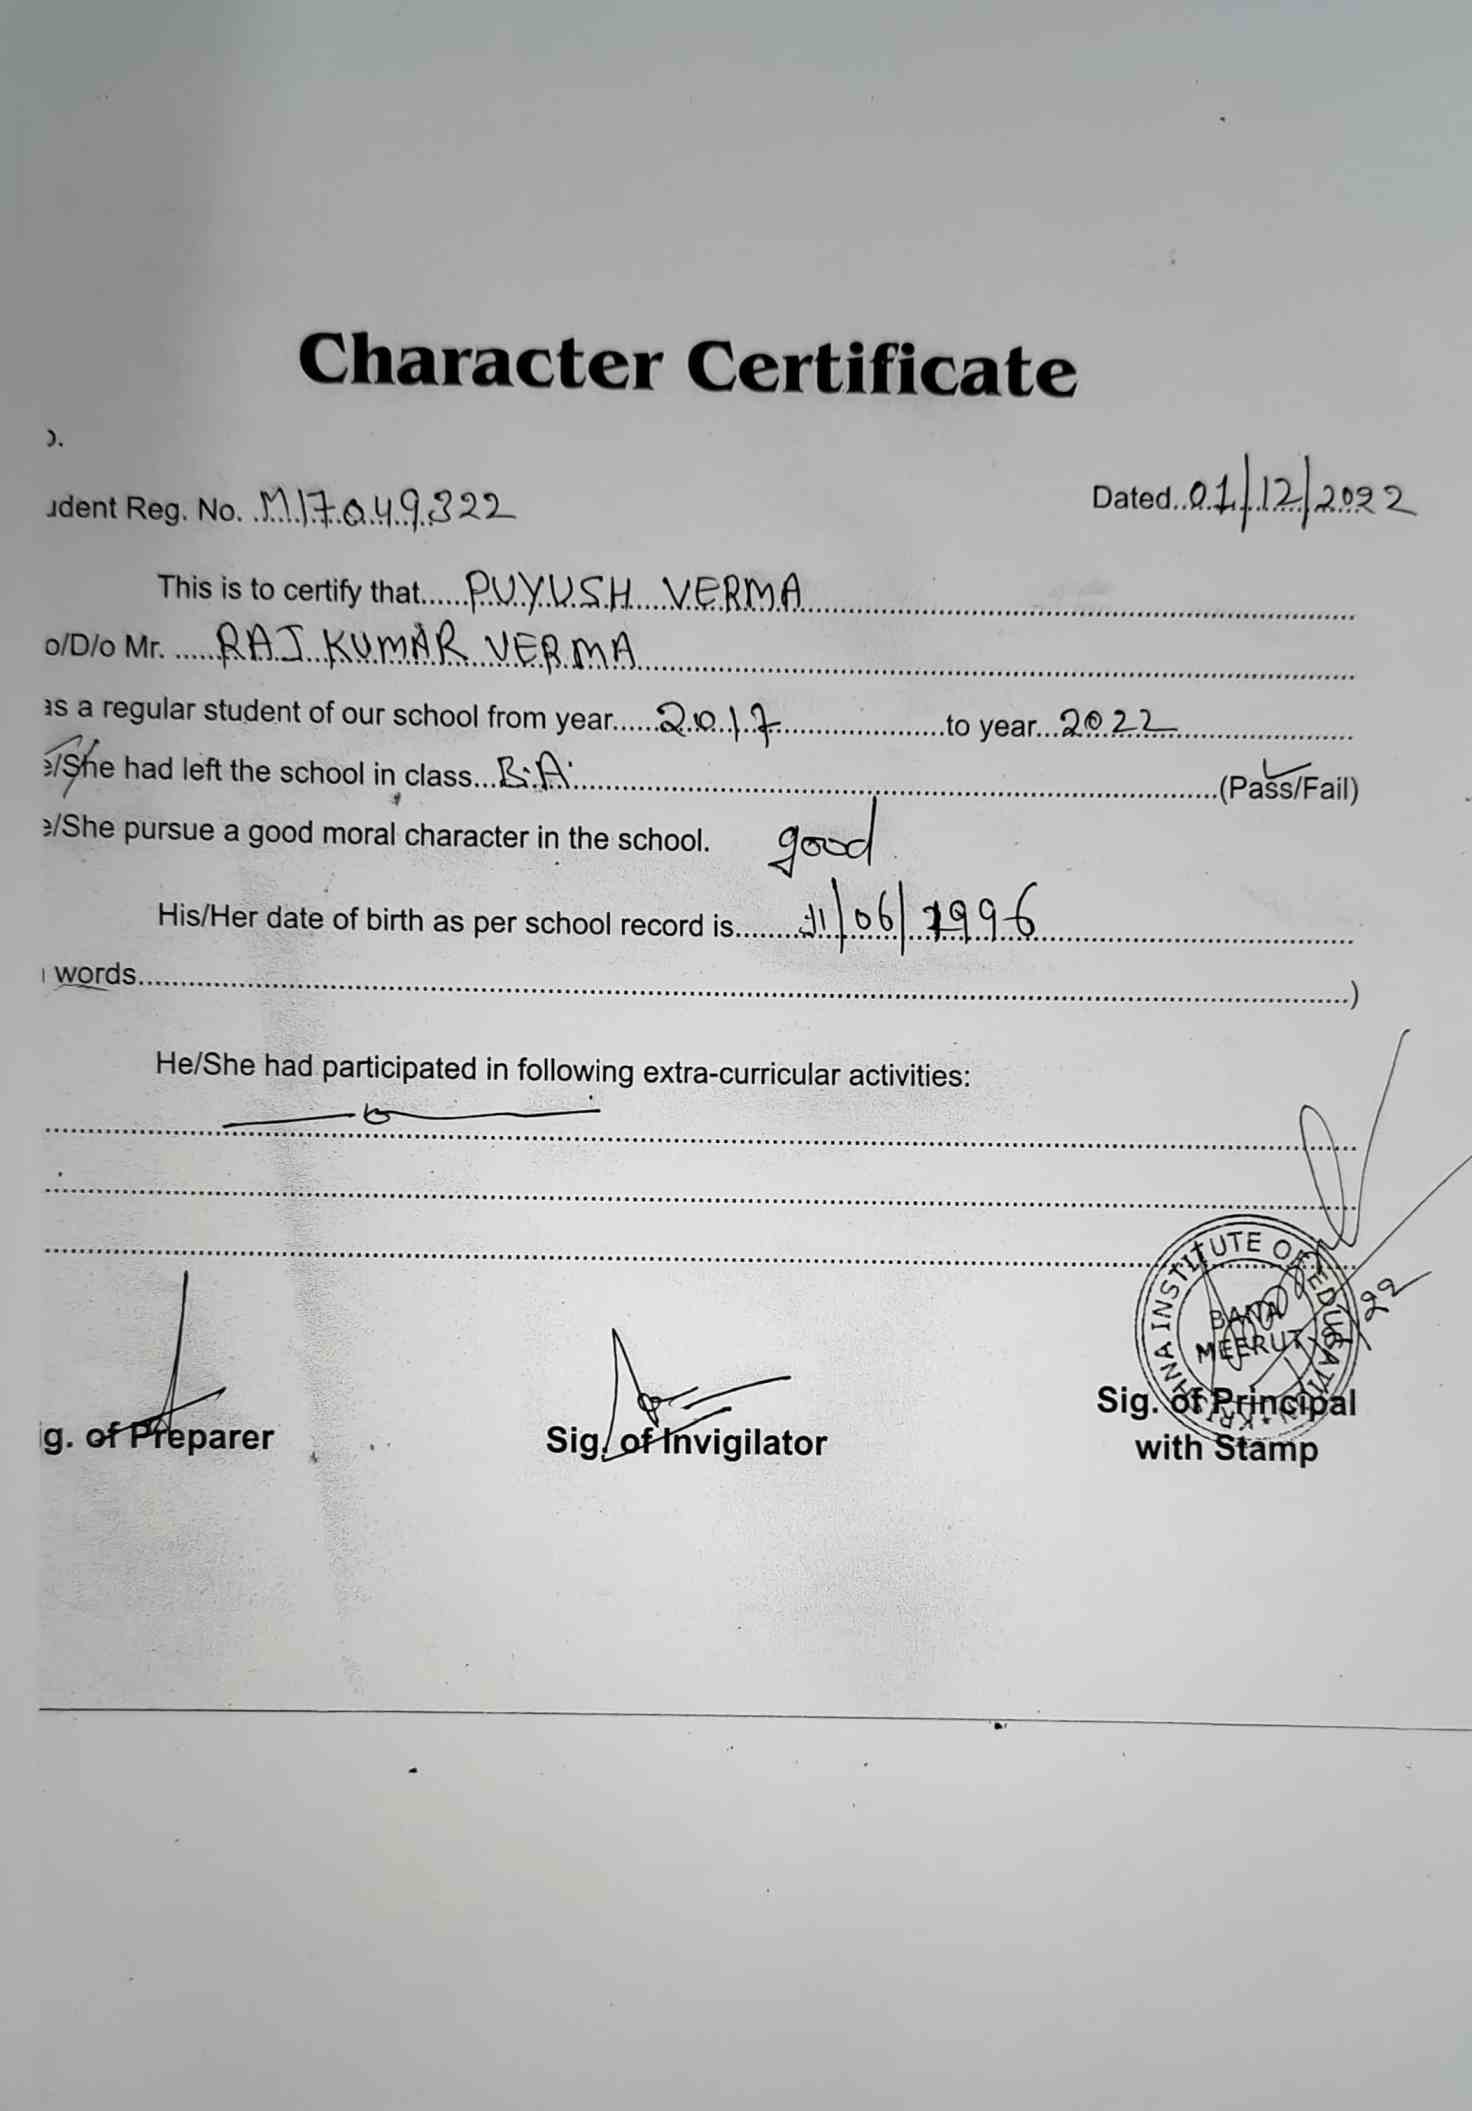 Character Certificate
o.
udent Reg. No. M17049322 Dated 01/12/2022
This is to certify that PUYUSH VERMA
o/D/o Mr. RAJ KUMAR VERMA
as a regular student of our school from year 2017 to year 2022
e/She had left the school in class B.A. (Pass/Fail)
e/She pursue a good moral character in the school. good
His/Her date of birth as per school record is 11/06/1996
words )
He/She had participated in following extra-curricular activities:
INSTITUTE OF EDUCATION
MEERUT
g. of Preparer Sig. of Invigilator Sig. of Principal
with Stamp